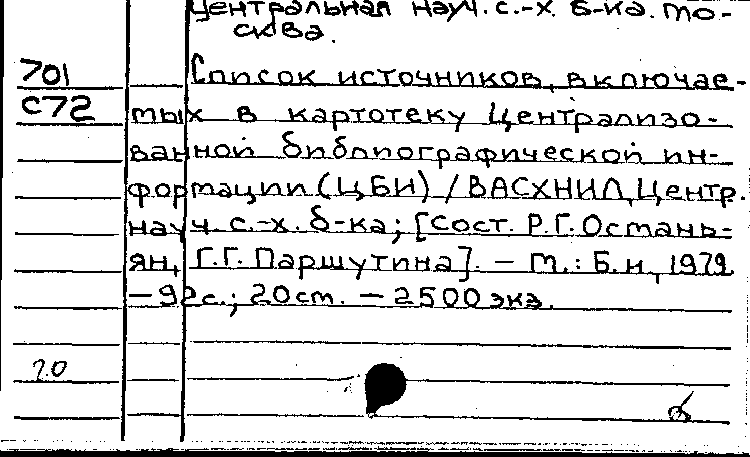 Центральная науч. с.-х. б-ка. Мо-
сква.
701 Список источников, включае-
С72 мых в картотеку Централизо-
ванной библиографической ин-
формации (ЦБИ) / ВАСХНИЛ, Центр.
науч. с.-х. б-ка; [Сост. Р.Г. Остань-
ян, Г.Г. Паршутина]. — М.: Б.и, 1979
— 92 с.; 20 см. — 2500 экз.
20